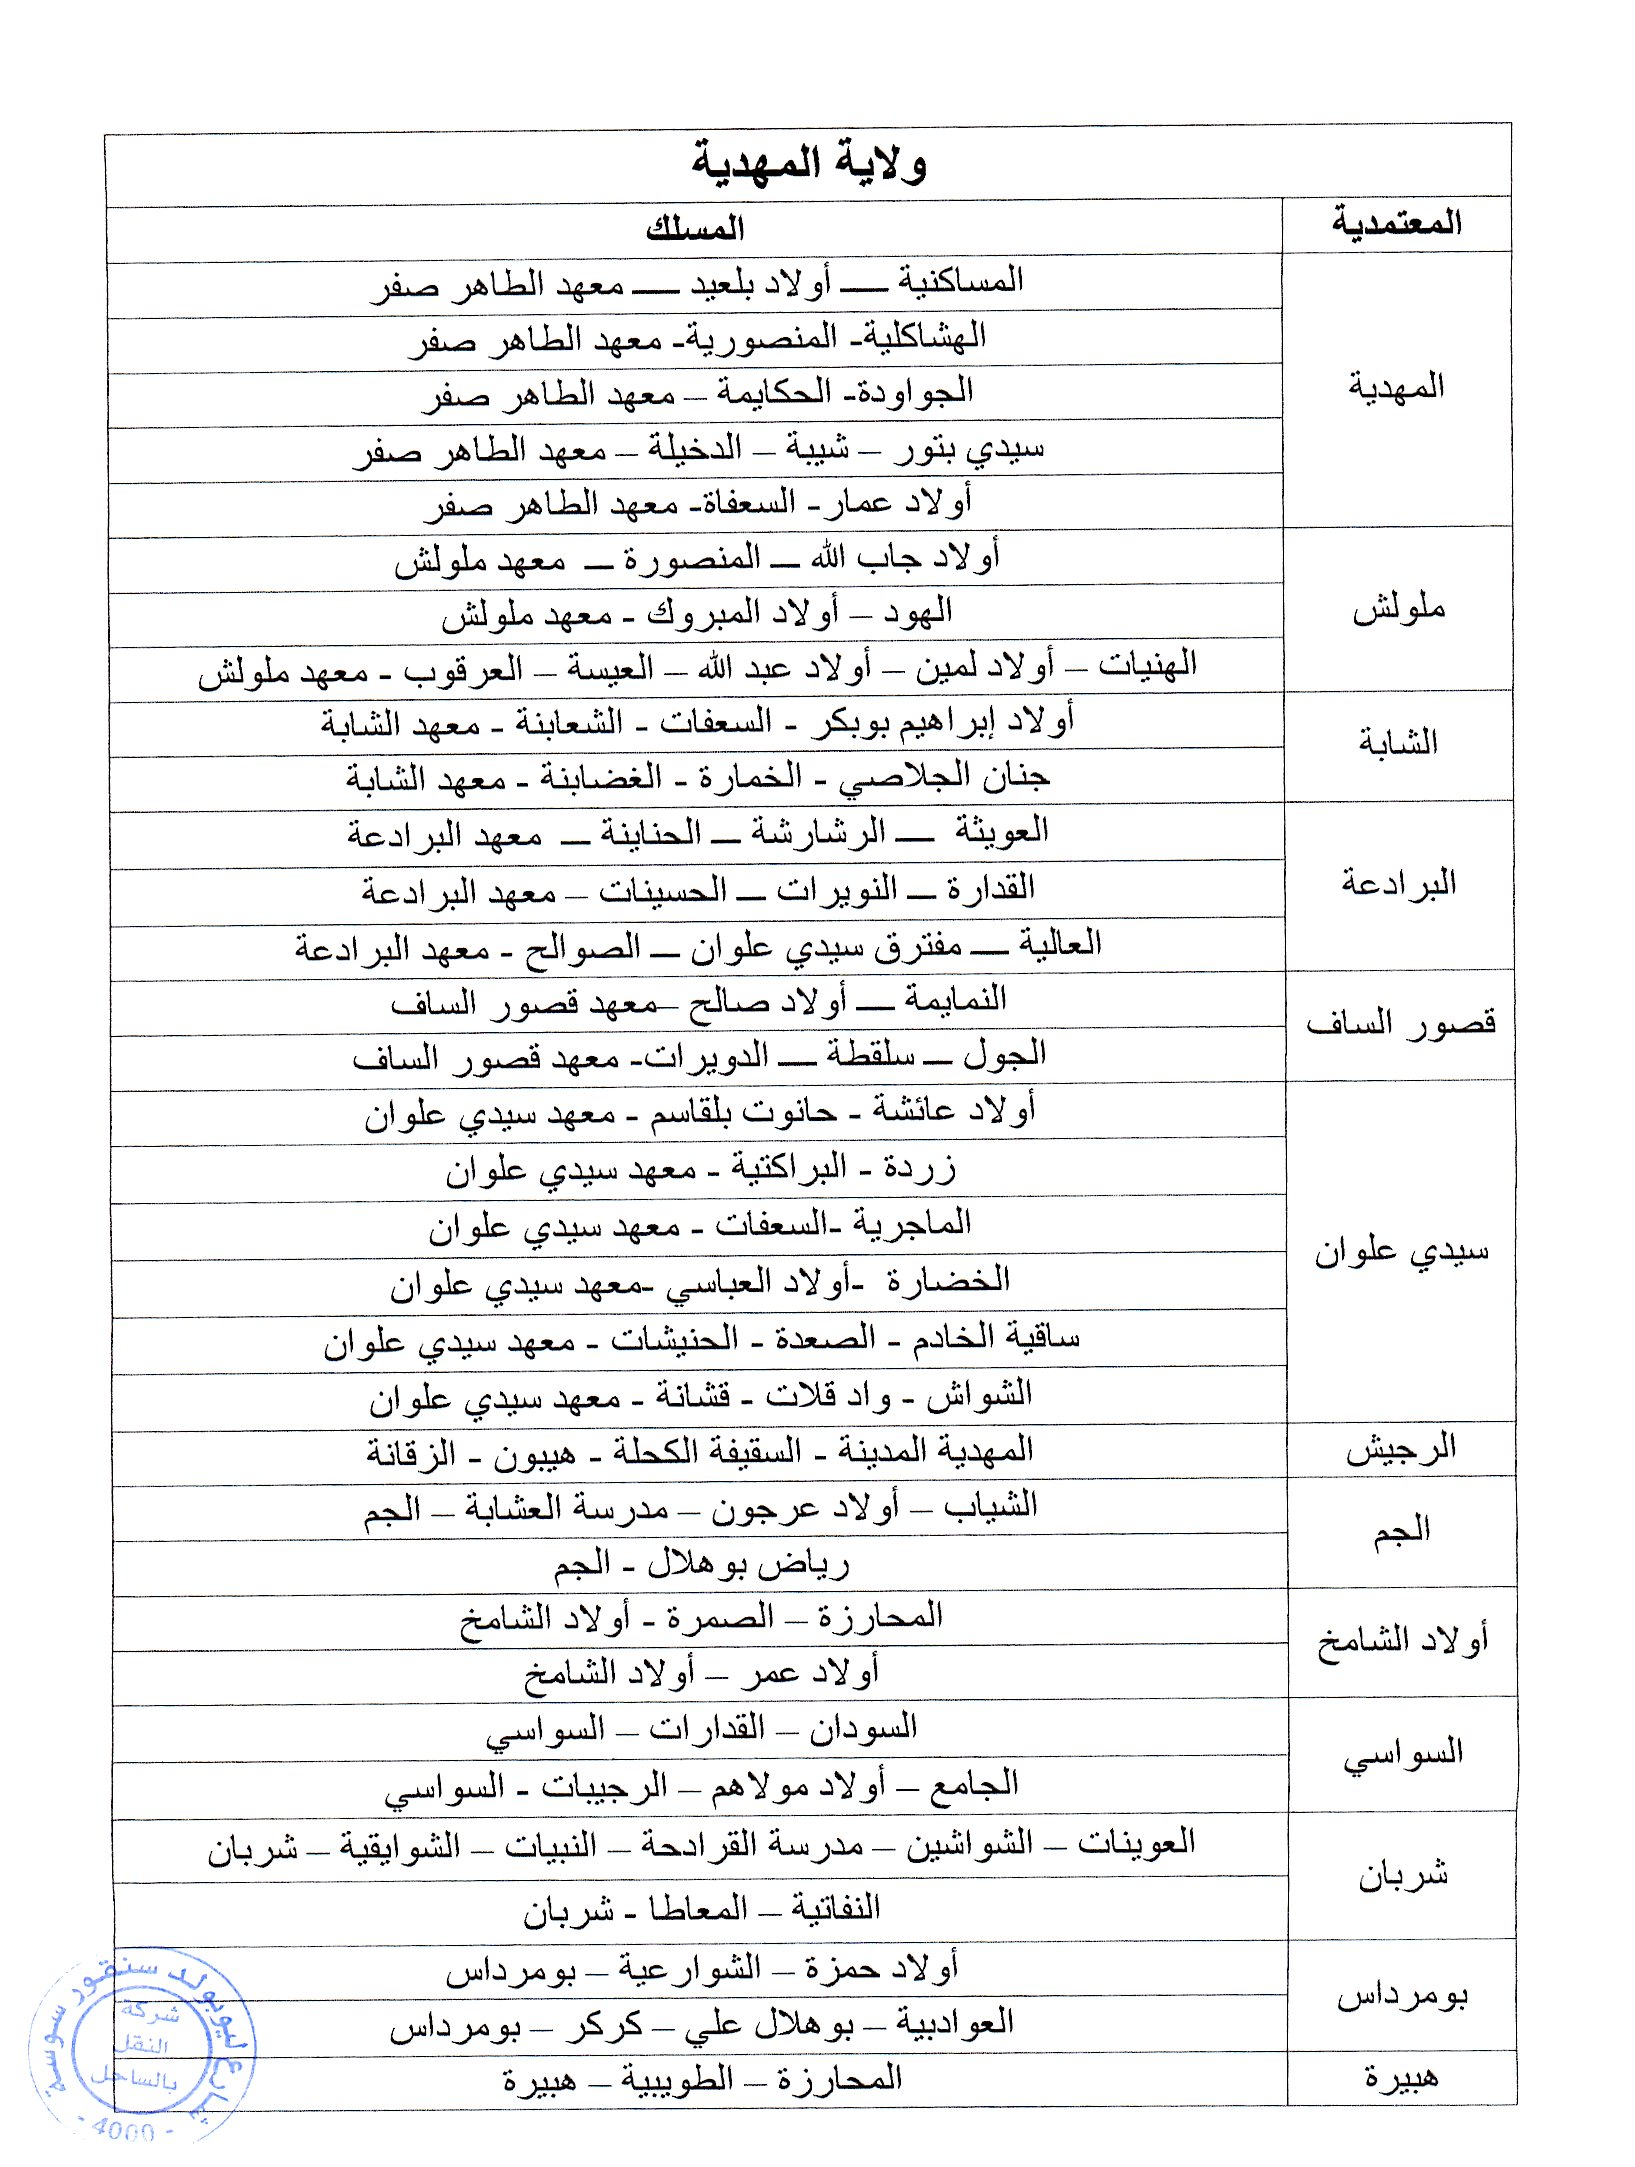 ولاية المهدية
المعتمدية
المسلك
المهدية
المساكنية ــ أولاد بلعيد ــ معهد الطاهر صفر
الهشاكلية- المنصورية- معهد الطاهر صفر
الجواودة- الحكايمة – معهد الطاهر صفر
سيدي بتور – شيبة – الدخيلة – معهد الطاهر صفر
أولاد عمار- السعفاة- معهد الطاهر صفر
ملولش
أولاد جاب الله ــ المنصورة ــ معهد ملولش
الهود – أولاد المبروك - معهد ملولش
الهنيات – أولاد لمين – أولاد عبد الله – العيسة – العرقوب - معهد ملولش
الشابة
أولاد إبراهيم بوبكر - السعفات - الشعابنة - معهد الشابة
جنان الجلاصي - الخمارة - الغضابنة - معهد الشابة
البرادعة
العويثة ــ الرشارشة ــ الحناينة ــ معهد البرادعة
القدارة ــ النويرات ــ الحسينات – معهد البرادعة
العالية ــ مفترق سيدي علوان ــ الصوالح - معهد البرادعة
قصور الساف
النمايمة ــ أولاد صالح –معهد قصور الساف
الجول ــ سلقطة ــ الدويرات- معهد قصور الساف
سيدي علوان
أولاد عائشة - حانوت بلقاسم - معهد سيدي علوان
زردة - البراكتية - معهد سيدي علوان
الماجرية -السعفات - معهد سيدي علوان
الخضارة -أولاد العباسي -معهد سيدي علوان
ساقية الخادم - الصعدة - الحنيشات - معهد سيدي علوان
الشواش - واد قلات - قشانة - معهد سيدي علوان
الرجيش
المهدية المدينة - السقيفة الكحلة - هيبون - الزقانة
الجم
الشياب – أولاد عرجون – مدرسة العشابة – الجم
رياض بوهلال - الجم
أولاد الشامخ
المحارزة – الصمرة - أولاد الشامخ
أولاد عمر – أولاد الشامخ
السواسي
السودان – القدارات – السواسي
الجامع – أولاد مولاهم – الرجيبات - السواسي
شربان
العوينات – الشواشين – مدرسة القرادحة – النبيات – الشوايقية – شربان
النفاتية – المعاطا - شربان
بومرداس
أولاد حمزة – الشوارعية – بومرداس
العوادبية – بوهلال علي – كركر – بومرداس
هبيرة
المحارزة – الطويبية – هبيرة
شارع ليوبولد سنقور سوسة
شركة
النقل
بالساحل
- 4000 -